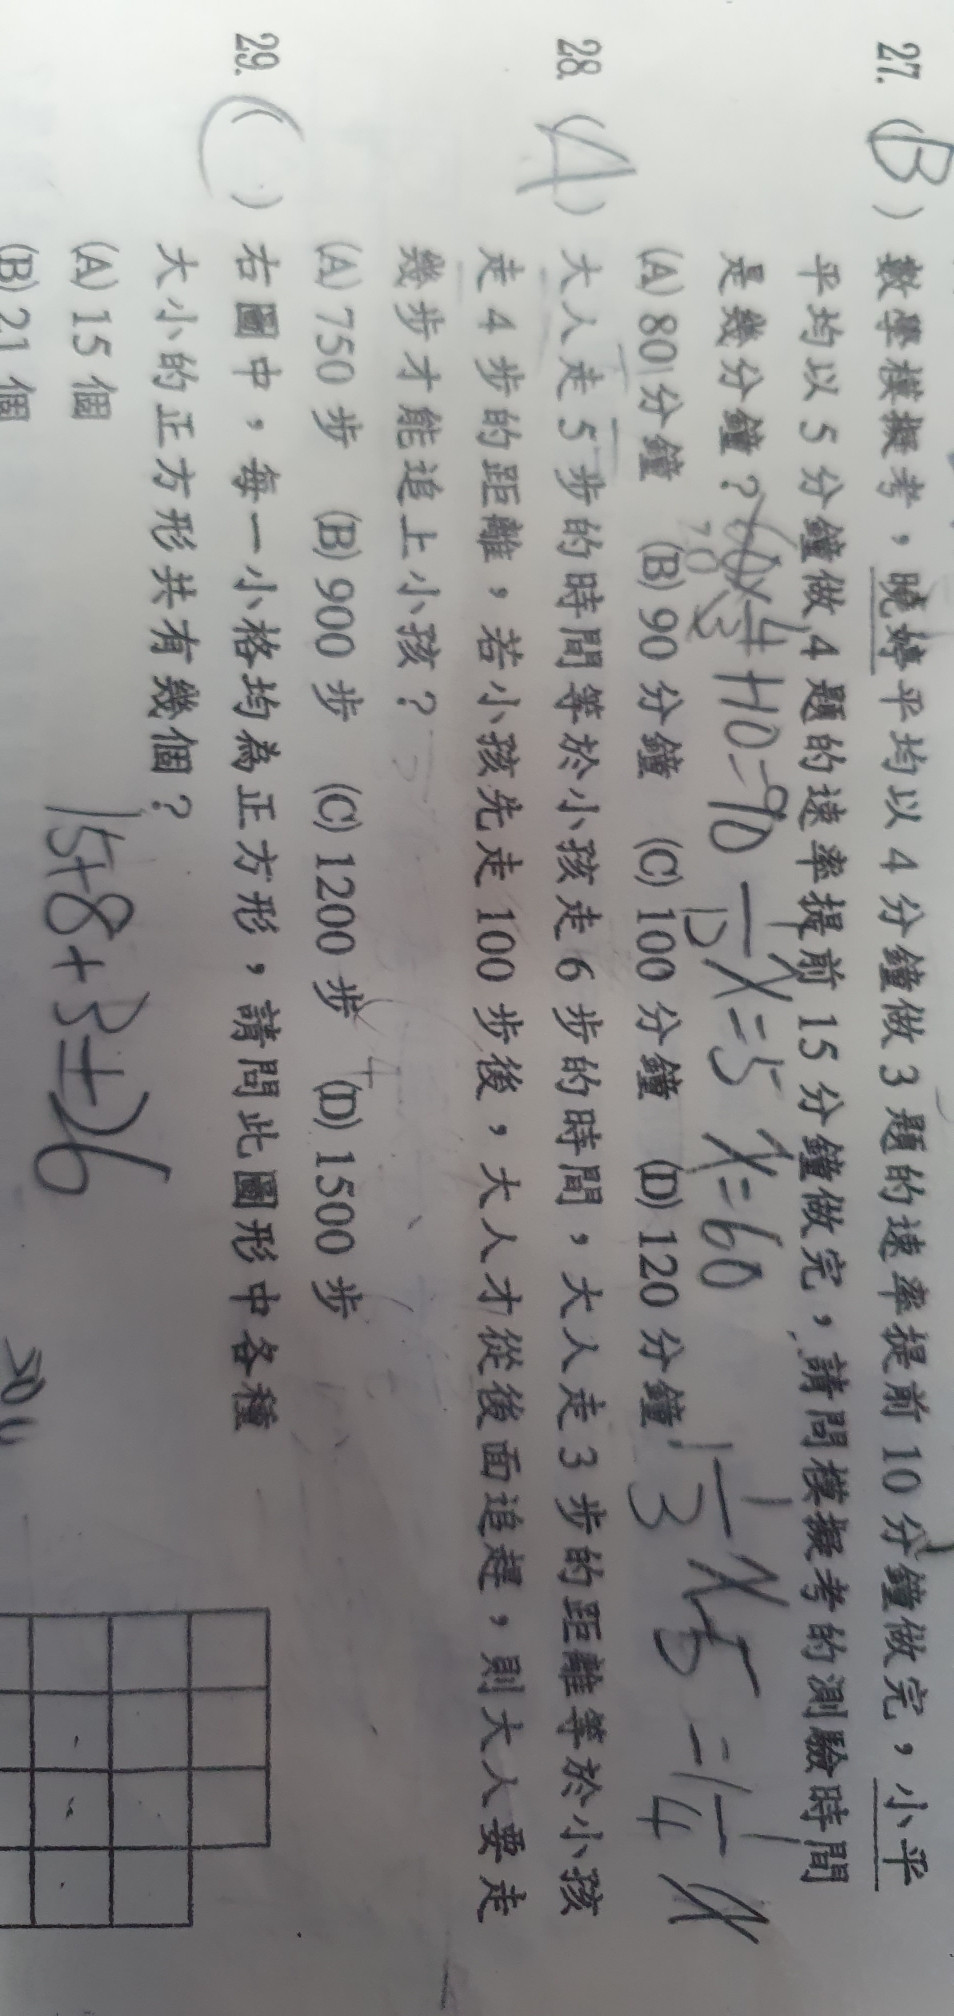 27. ( B ) 數學模擬考，曉婷平均以 4 分鐘做 3 題的速率提前 10 分鐘做完，小平
平均以 5 分鐘做 4 題的速率提前 15 分鐘做完，請問模擬考的測驗時間
是幾分鐘？ +10=90 x=5 x=60
(A) 80 分鐘 (B) 90 分鐘 (C) 100 分鐘 (D) 120 分鐘
28. ( A ) 大人走 5 步的時間等於小孩走 6 步的時間，大人走 3 步的距離等於小孩
走 4 步的距離，若小孩先走 100 步後，大人才從後面追趕，則大人要走
幾步才能追上小孩？
(A) 750 步 (B) 900 步 (C) 1200 步 (D) 1500 步
29. ( ) 右圖中，每一小格均為正方形，請問此圖形中各種
大小的正方形共有幾個？
(A) 15 個
15+8+3=26
(B) 21 個